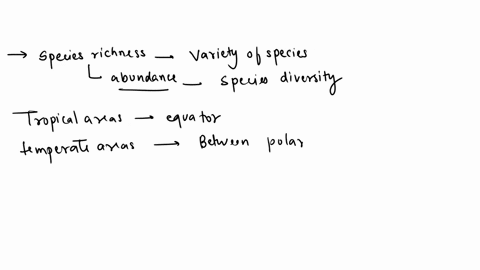 → Species richness — Variety of species
abundance — species diversity
Tropical areas → equator
temperate areas → Between polar